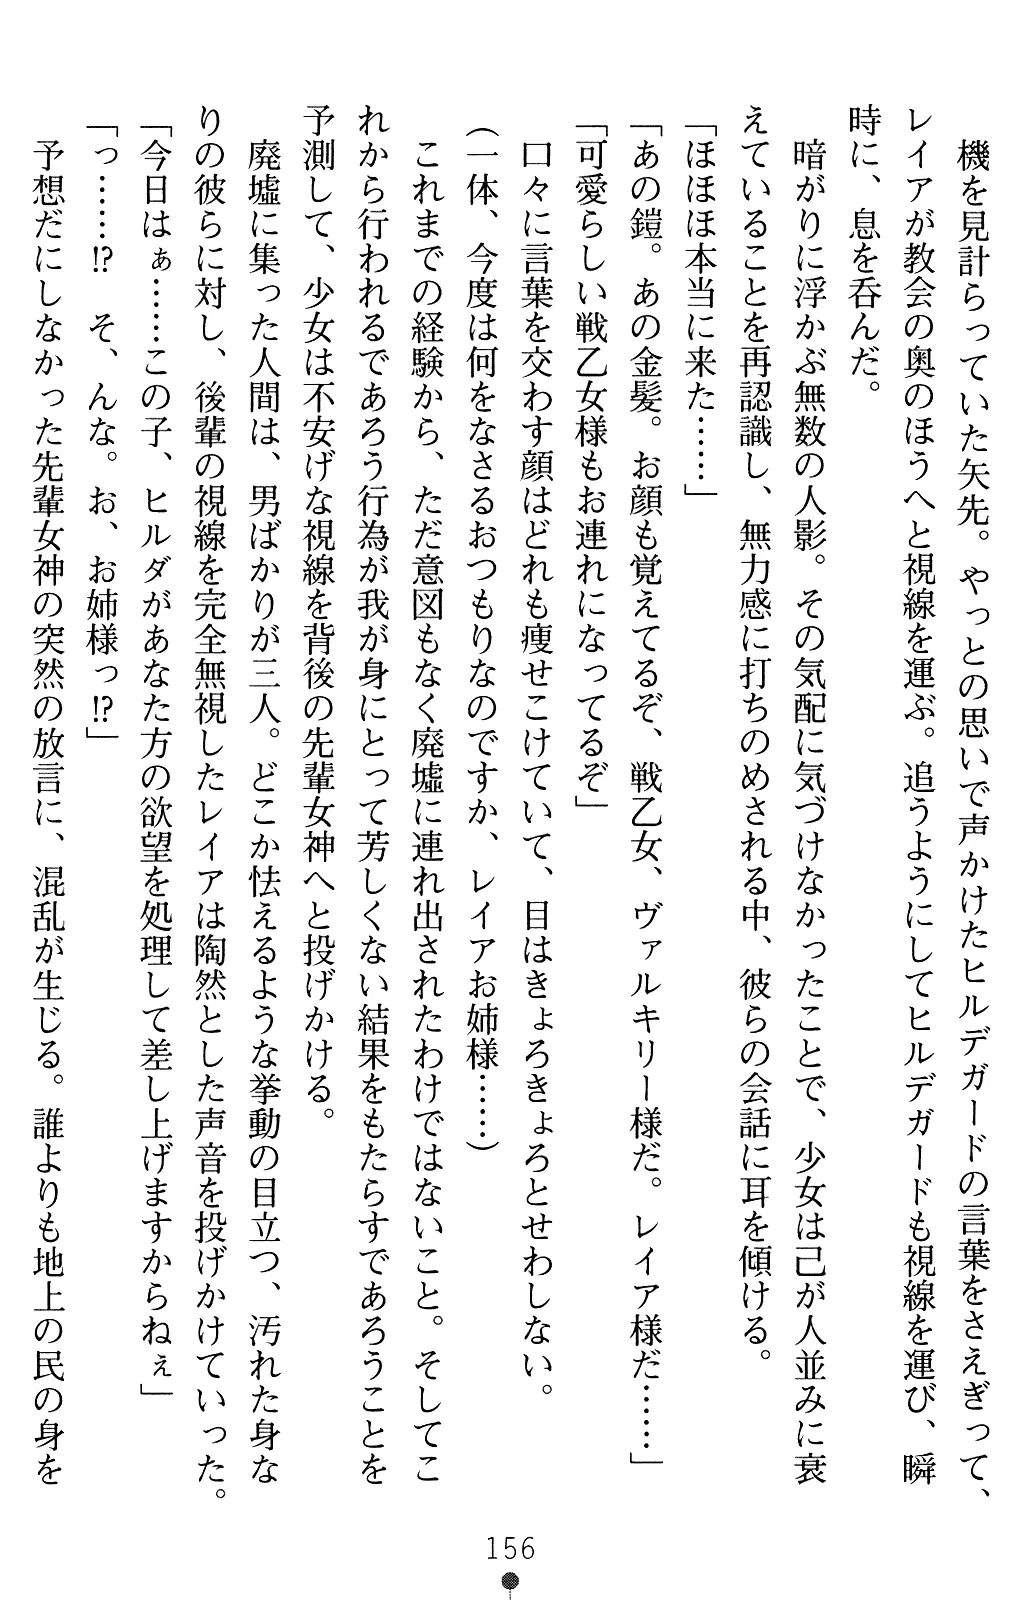 機を見計らっていた矢先。やっとの思いで声かけたヒルデガードの言葉をさえぎって、
レイアが教会の奥のほうへと視線を運ぶ。追うようにしてヒルデガードも視線を運び、瞬
時に、息を呑んだ。
暗がりに浮かぶ無数の人影。その気配に気づけなかったことで、少女は己が人並みに衰
えていることを再認識し、無力感に打ちのめされる中、彼らの会話に耳を傾ける。
「ほほほ本当に来た……」
「あの鎧。あの金髪。お顔も覚えてるぞ、戦乙女、ヴァルキリー様だ。レイア様だ……」
「可愛らしい戦乙女様もお連れになってるぞ」
口々に言葉を交わす顔はどれも痩せこけていて、目はきょろきょろとせわしない。
(一体、今度は何をなさるおつもりなのですか、レイアお姉様……)
これまでの経験から、ただ意図もなく廃墟に連れ出されたわけではないこと。そしてこ
れから行われるであろう行為が我が身にとって芳しくない結果をもたらすであろうことを
予測して、少女は不安げな視線を背後の先輩女神へと投げかける。
廃墟に集った人間は、男ばかりが三人。どこか怯えるような挙動の目立つ、汚れた身な
りの彼らに対し、後輩の視線を完全無視したレイアは陶然とした声音を投げかけていった。
「今日はぁ……この子、ヒルダがあなた方の欲望を処理して差し上げますからねぇ」
「っ……!? そ、んな。お、お姉様っ!?」
予想だにしなかった先輩女神の突然の放言に、混乱が生じる。誰よりも地上の民の身を
156